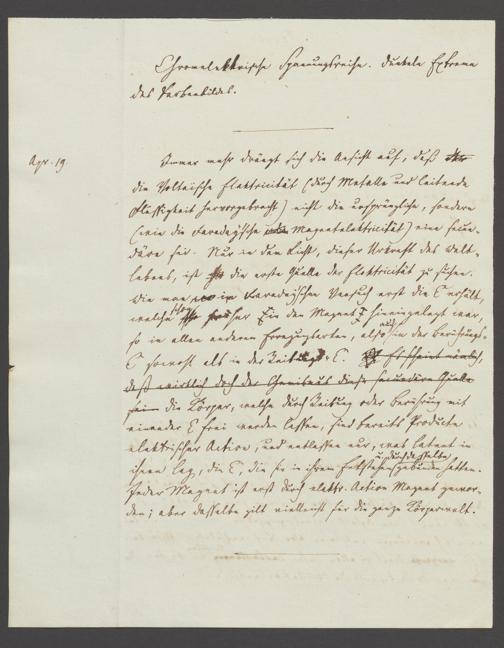 Chromelektrische Spannungsreihe. Dunkele Extreme
des Farbenbildes.
Apr. 19.
Immer mehr drängt sich die Ansicht auf, daß
die Voltaische Elektricität (durch Metalle und leitende
Flüssigkeit hervorgebracht) nicht die ursprüngliche, sondern
(wie die Faradaysche Magnetelektricität) eine secun-
däre sei. Nur in dem Licht, dieser Urkraft des Welt-
lebens, ist die erste Quelle der Elektricität zu suchen.
Wie man im Faradayschen Versuch erst die E erhält,
welche früher in den Magnet hineingelegt war,
so in allen anderen Erregungsarten, also auch in der Berührungs-
E sowohl als in der Reibungs-E. Es scheint nämlich,
daß wirklich doch der diese secundäre Quelle
seien die Körper, welche durch Reibung oder Berührung mit
einander E frei werden lassen, sind bereits Producte
elektrischer Action, und entlassen nur, was latent in
ihnen lag, die E, die sie in ihrem Entstehen u. durch dasselbe gebunden hatten.
Jeder Magnet ist erst durch elektr. Action Magnet gewor-
den; aber dasselbe gilt vielleicht für die ganze Körperwelt.